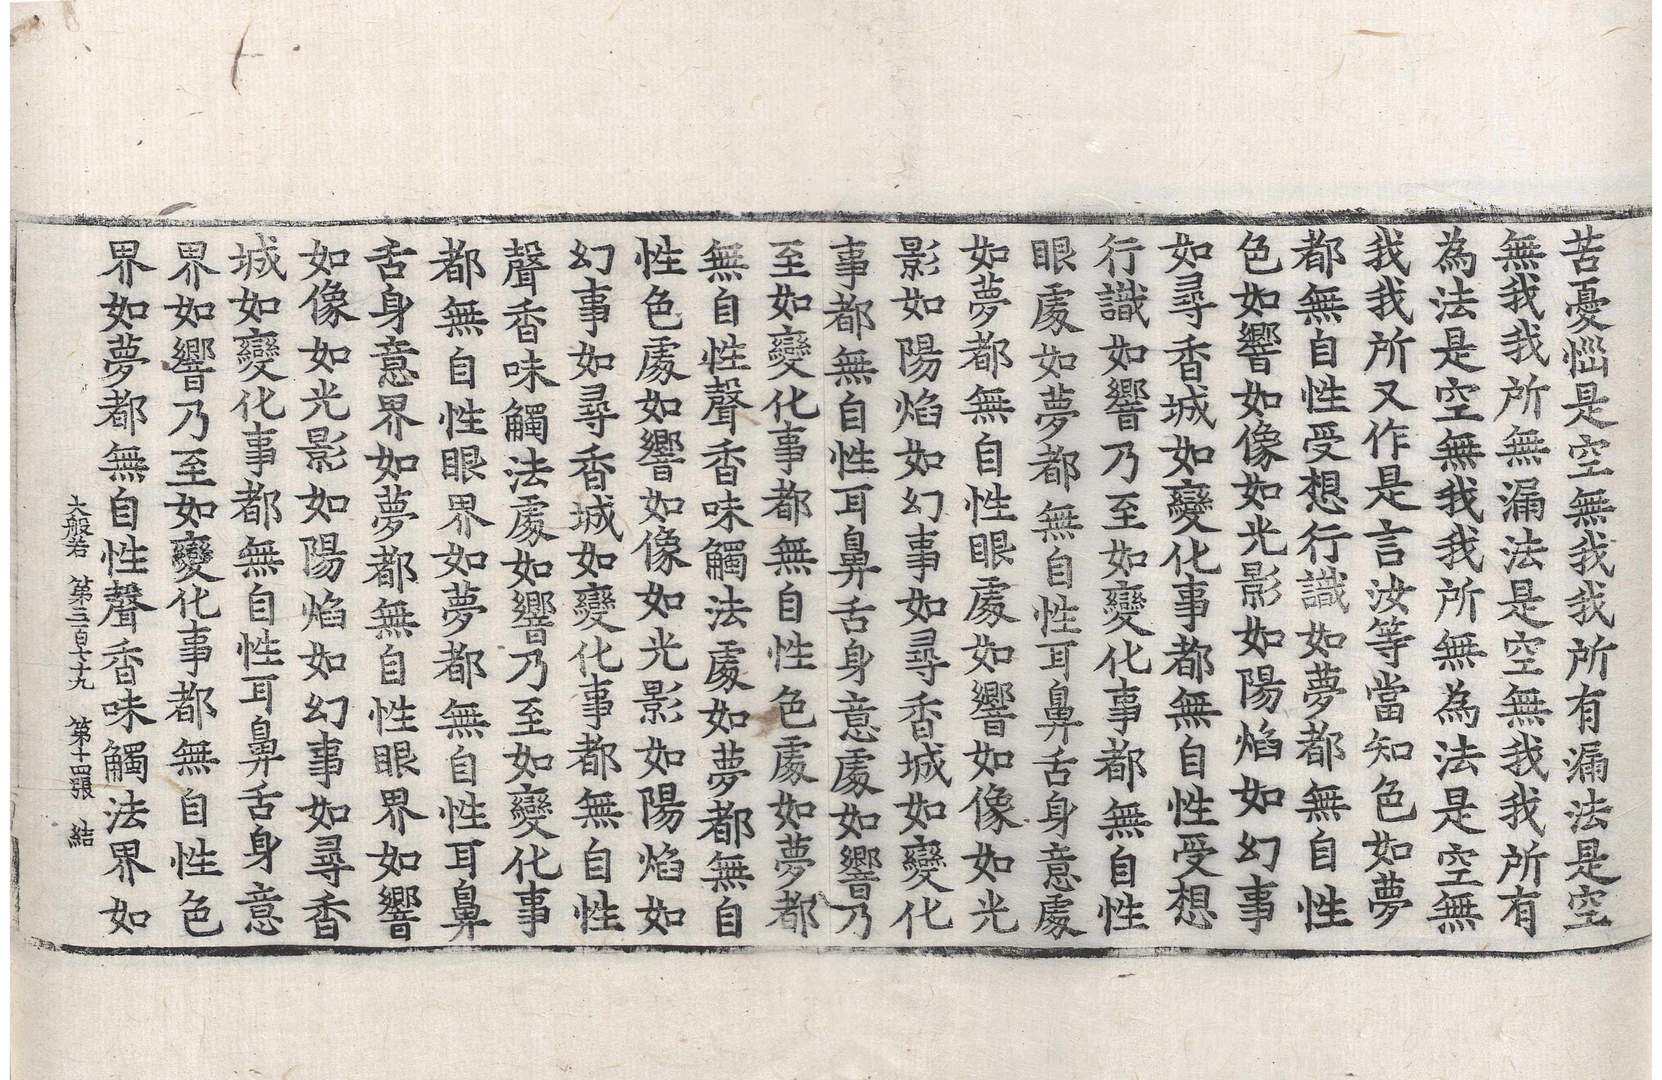 苦憂惱是空無我我所有漏法是空
無我我所無漏法是空無我我所有
為法是空無我我所無為法是空無
我我所又作是言汝等當知色如夢
都無自性受想行識如夢都無自性
色如響如像如光影如陽焰如幻事
如尋香城如變化事都無自性受想
行識如響乃至如變化事都無自性
眼處如夢都無自性耳鼻舌身意處
如夢都無自性眼處如響如像如光
影如陽焰如幻事如尋香城如變化
事都無自性耳鼻舌身意處如響乃
至如變化事都無自性色處如夢都
無自性聲香味觸法處如夢都無自
性色處如響如像如光影如陽焰如
幻事如尋香城如變化事都無自性
聲香味觸法處如響乃至如變化事
都無自性眼界如夢都無自性耳鼻
舌身意界如夢都無自性眼界如響
如像如光影如陽焰如幻事如尋香
城如變化事都無自性耳鼻舌身意
界如響乃至如變化事都無自性色
界如夢都無自性聲香味觸法界如
大般若 第三百七十九 第十四張 結